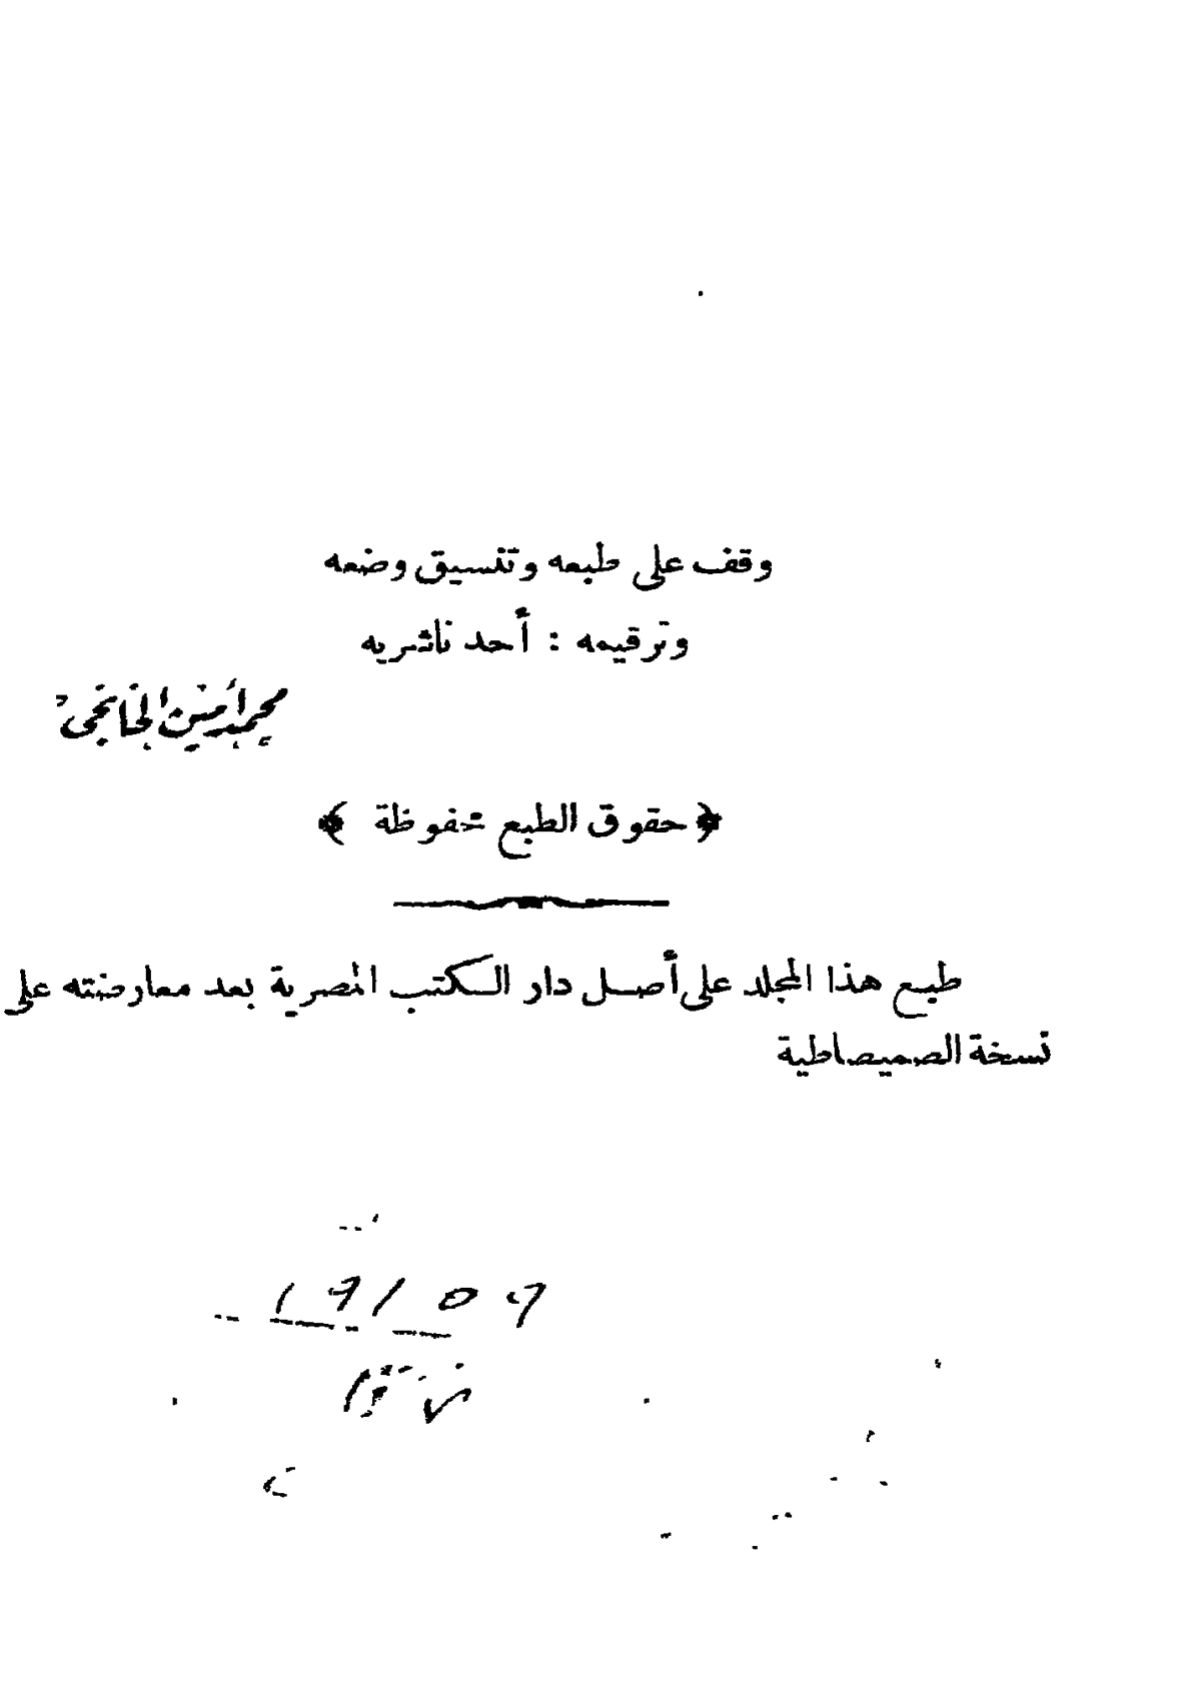 وقف على طبعه وتنسيق وضعه
وترقيمه : أحد ناشريه
محمد أمين الخانجى
﴿ حقوق الطبع محفوظة ﴾
طبع هذا المجلد على أصل دار الكتب المصرية بعد معارضته على
نسخة الصميصاطية